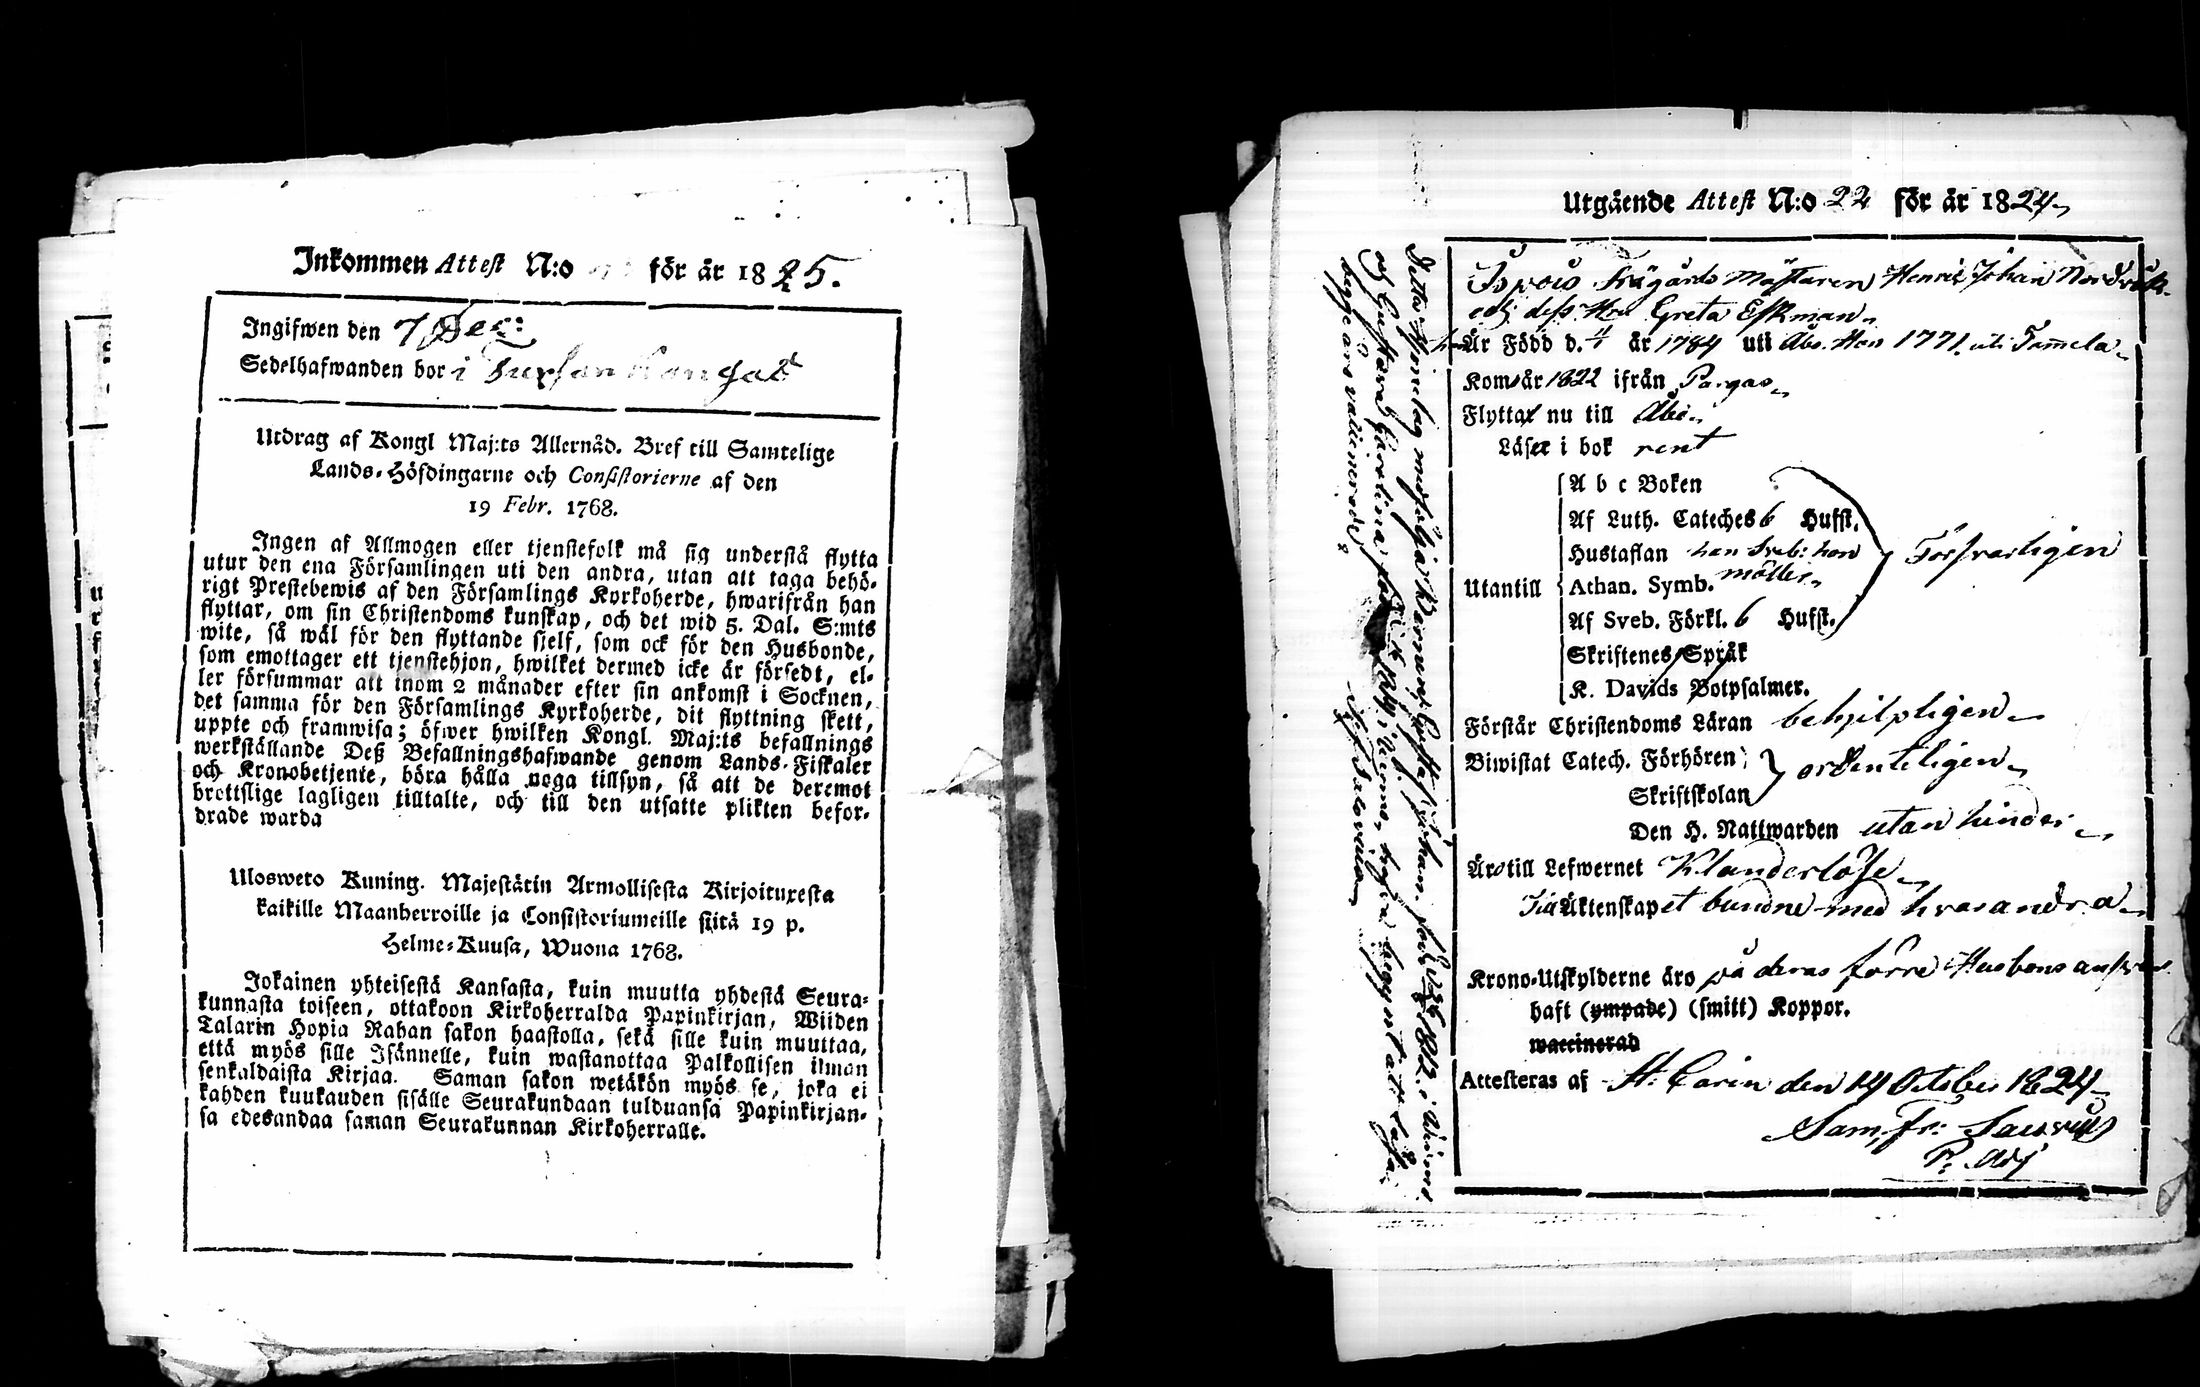 Inkommen Attest N:o för år 1825.
Ingifwen den 7 Dec:
Sedelhafwanden bor i
Utdrag af Kongl Maj:ts Allernåd. Bref till Samtelige
Lands-Höfdingarne och Consistorierne af den
19 Febr. 1768.
Ingen af Allmogen eller tjenstefolk må sig understå flytta
utur den ena Församlingen uti den andra, utan att taga behö-
rigt Prestebewis af den Församlings Kyrkoherde, hwarifrån han
flyttar, om sin Christendoms kunskap, och det wid 5. Dal. S:mts
wite, så wäl för den flyttande sjelf, som ock för den Husbonde,
som emottager ett tjenstehjon, hwilket dermed icke är försedt, el-
ler försummar att inom 2 månader efter sin ankomst i Socknen,
det samma för den Församlings Kyrkoherde, dit flyttning skett,
uppte och framwisa; öfwer hwilken Kongl. Maj:ts befallnings
werkställande Deß Befallningshafwande genom Lands-Fiskaler
och Kronobetjente, böra hålla noga tillsyn, så att de deremot
brottslige lagligen tilltalte, och till den utsatte plikten befor-
drade warda
Ulosweto Kuning. Majestätin Armollisesta Kirjoituxesta
kaikille Maanherroille ja Consistoriumeille siitä 19 p.
Helme-Kuusa, Wuona 1768.
Jokainen yhteisestä Kansasta, kuin muutta yhdestä Seura-
kunnasta toiseen, ottakoon Kirkoherralda Papinkirjan, Wiiden
Talarin Hopia Rahan sakon haastolla, sekä sille kuin muuttaa,
että myös sille Isännelle, kuin wastanottaa Palkollisen ilman
senkaldaista Kirjaa. Saman sakon wetäkön myös se, joka ei
kahden kuukauden sisälle Seurakundaan tulduansa Papinkirjan-
sa edesandaa saman Seurakunnan Kirkoherralle.
Utgående Attest N:o 22 för år 1824
Trägårds Mästaren Henric Johan
och dess Hru Greta Ekman
Är Född d. år 1784 uti Åbo. Hon 1771. uti Tamela
Kom år 1822 ifrån Pargas
Flytta nu till Åbo
Läser i bok rent
A b c Boken
Af Luth. Cateches 6 Hufst.
Hustaflan han Sveb: hon
Utantill Athan. Symb. Försvarligen
Af Sveb. Förkl. 6 Hufst.
Skriftenes Språk
K. Davids Botpsalmer.
Förstår Christendoms Läran behjelpligen
Biwistat Catech. Förhören ordenteligen
Skriftskolan
Den H. Nattwarden utan hinder
Äro till Lefwernet Klanderlöse
Till Äktenskapet bundne med hvarandra
Krono-Utskylderne äro på deras förre Husbonds ansvar
haft (ympade) (smitt) Koppor.
waccinerad
Attesteras af St. Carin den 14 October 1824